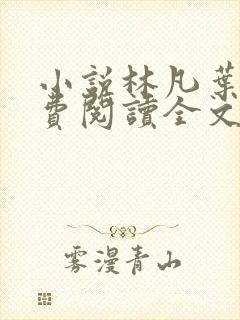 小說林凡葉
費閱讀全文
雾漫青山